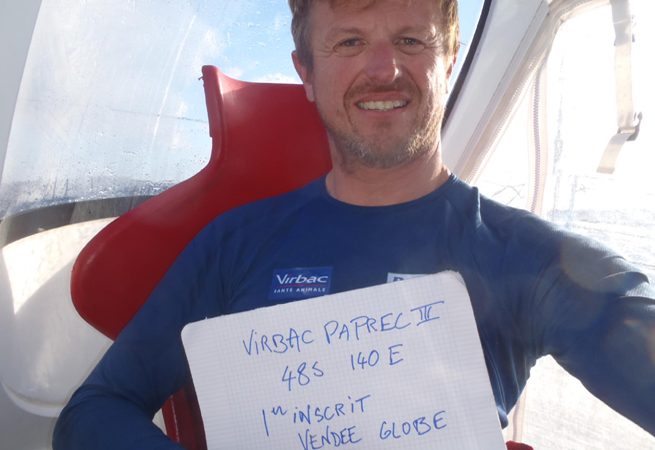 Virbac
SANTÉ ANIMALE
VIRBAC PAPREC III
48S 140 E
1er INSCRIT
VENDEE GLOBE